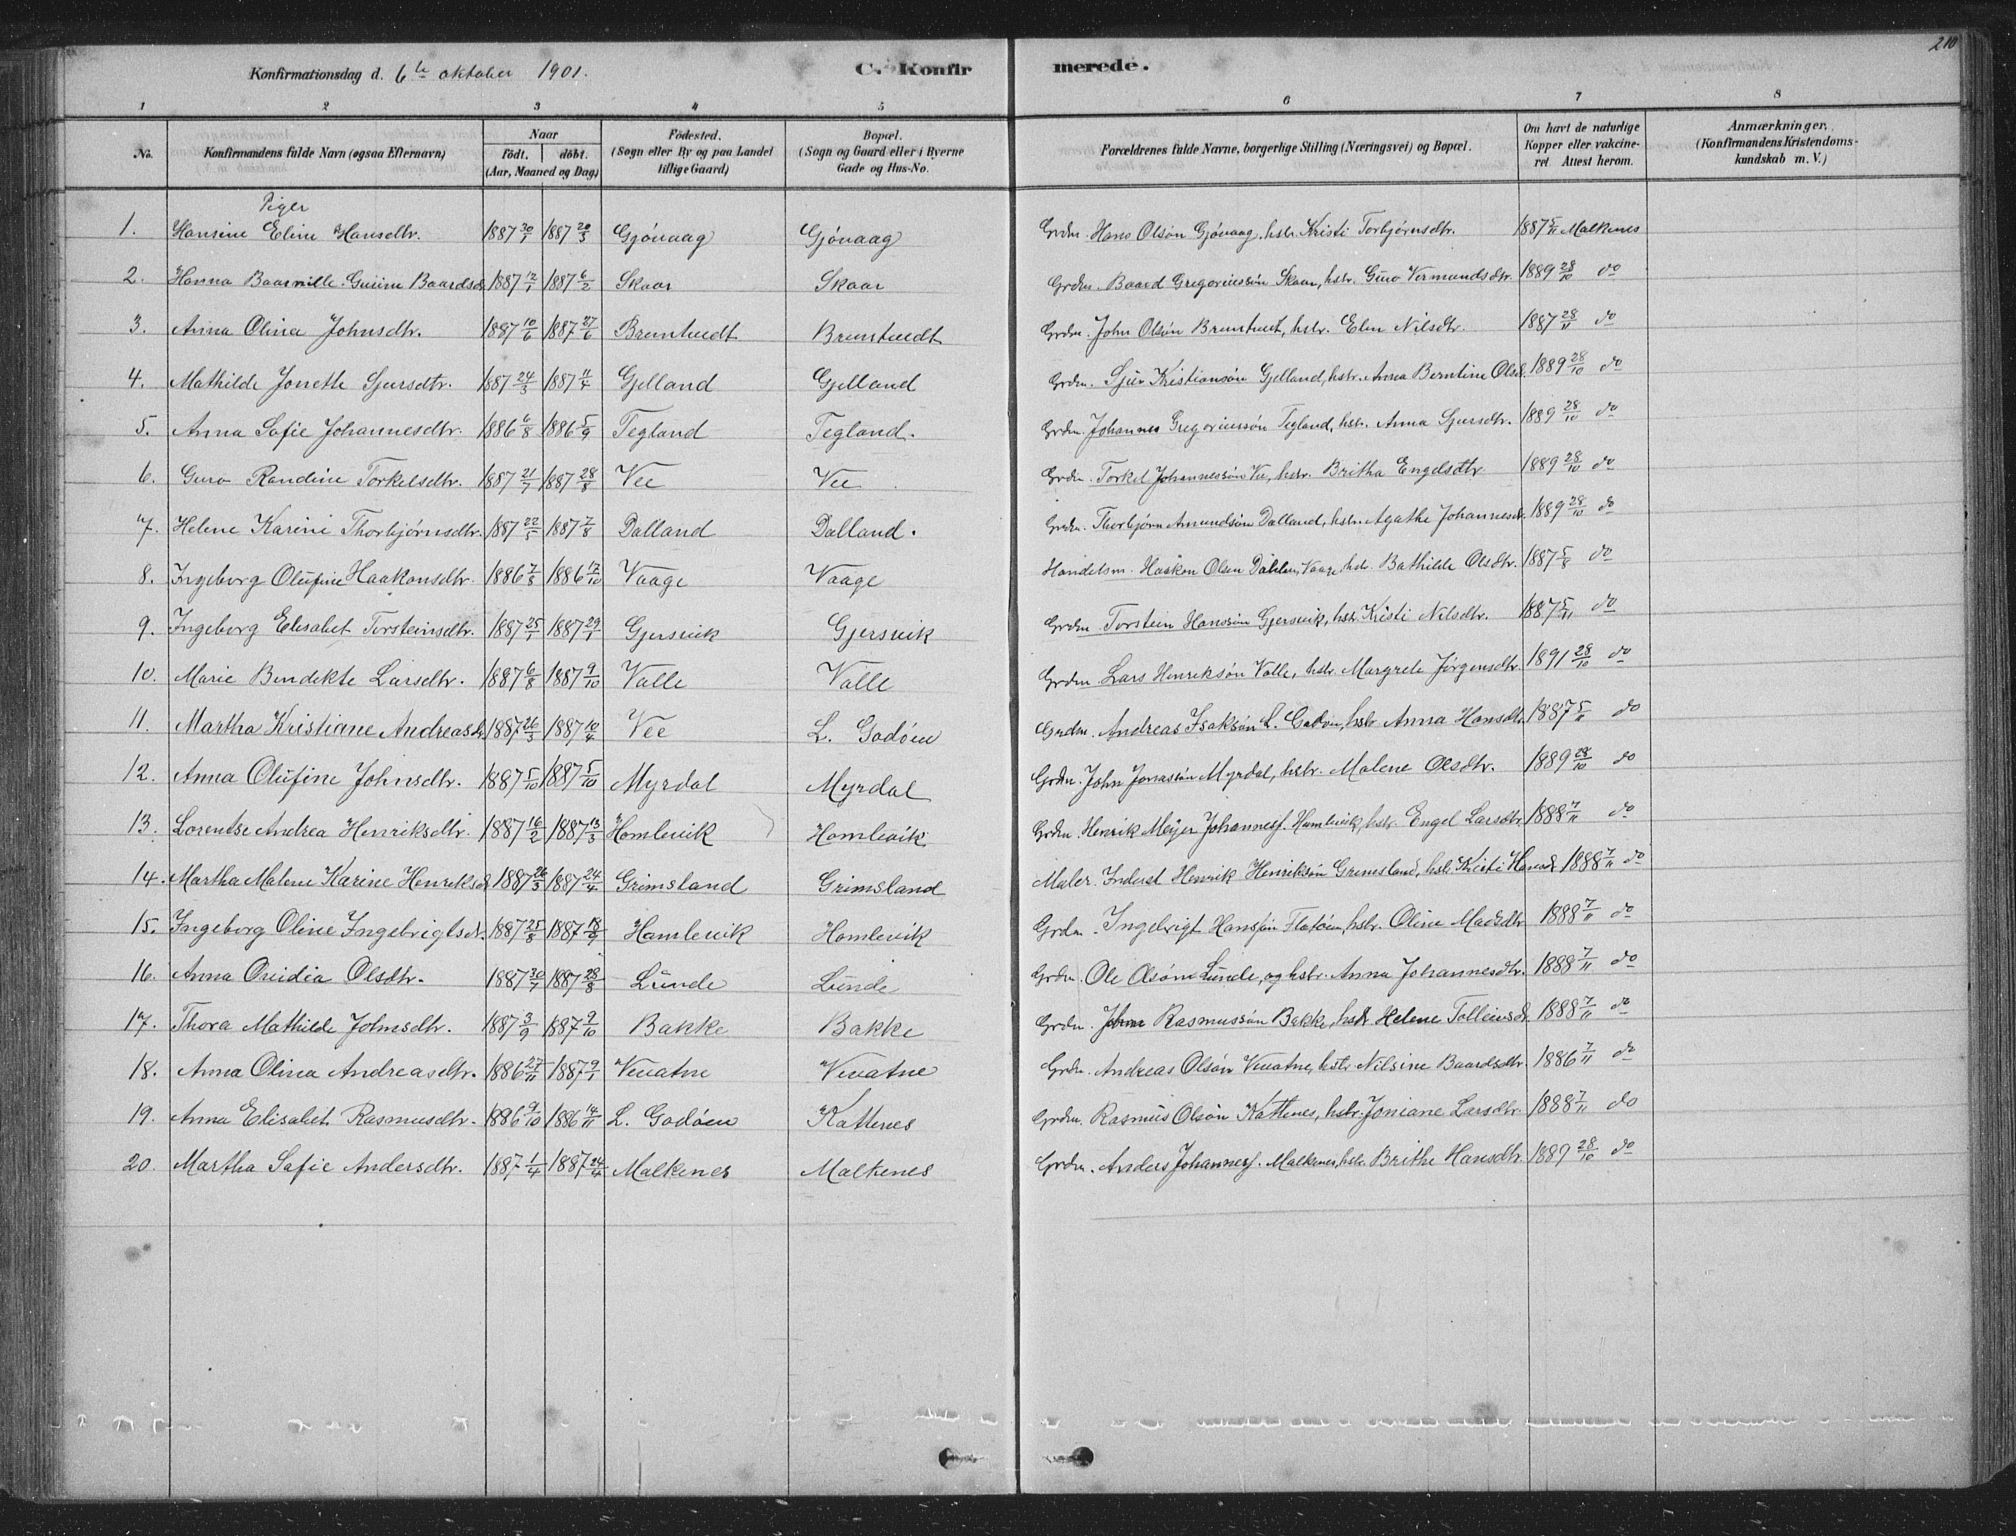 210
Konfirmationsdag d. 6te oktober 1901. C. Konfirmerede.
1 2 3 4 5 6 7 8
No. Konfirmandens fulde Navn (ogsaa Efternavn) Naar födt. döbt. (Aar, Maaned og Dag) Födested. (Sogn eller By og paa Landet tillige Gaard) Bopæl. (Sogn og Gaard eller i Byerne Gade og Hus-No. Forældrenes fulde Navne, borgerlige Stilling (Næringsvei) og Bopæl. Om havt de naturlige Kopper eller vakcineret. Attest herom. Anmærkninger. (Konfirmandens Kristendomskundskab m. V.)
Piger
1. Hansine Eline Hansdtr. 1887 30/1 1887 20/3 Gjövaag Gjövaag Grdm. Hans Olsön Gjövaag, hstr. Kristi Torbjörnsdtr. 1887 5/11 Malkenes
2. Hanna Baarnille Guine Baardsd. 1887 12/1 1887 6/2 Skaar Skaar Grdm. Baard Gregoriussön Skaar, hstr. Guro Vermundsdtr. 1889 28/10 do
3. Anna Olina Johnsdtr. 1887 10/6 1887 27/6 Bremtuedt Bremtuedt Grdm. John Olsön Bremtuet, hstr. Elen Nilsdtr. 1887 28/11 do
4. Mathilde Jonette Sjursdtr. 1887 24/3 1887 11/4 Gjelland Gjelland Grdm. Sjur Kristiansön Gjelland, hstr. Anna Berntine Olsd. 1889 28/10 do
5. Anna Safie Johannesdtr. 1886 6/8 1886 5/9 Tegland Tegland. Grdm. Johannes Gregoriussön Tegland, hstr. Anna Sjursdtr. 1889 28/10 do
6. Guro Randine Torkelsdtr. 1887 21/7 1887 28/8 Vee Vee Grdm. Torkel Johannessön Vee, hstr. Britha Engelsdtr 1889 28/10 do
7. Helene Karine Thorbjörnsdtr. 1887 22/5 1887 7/8 Dalland Dalland. Grdm. Thorbjörn Amundsön Dalland, hstr. Agathe Johannesd. 1889 28/10 do
8. Ingeborg Olufine Haakonsdtr. 1886 7/8 1886 17/10 Vaage Vaage Handelsm. Haakon Olsen Dahlen, Vaage hstr. Bathilde Olsdtr. 1887 5/8 do
9. Ingeborg Elisabet Torsteinsdtr. 1887 25/1 1887 29/1 Gjersvik Gjersvik Grdm. Torstein Hanssön Gjersvik, hstr. Kristi Nilsdtr. 1887 5/11 do
10. Marie Bendikte Larsdtr. 1887 6/8 1887 9/10 Valle Valle Grdm. Lars Henriksön Valle, hstr. Margrete Jörgensdtr 1891 28/10 do
11. Martha Kristiane Andreasd. 1887 26/3 1887 10/4 Vee L. Godöen Grdm. Andreas Isaksön L. Godöen, hstr Anna Hansdtr 1887 5/11 do
12. Anna Olufine Johnsdtr. 1887 5/10 1887 5/10 Myrdal Myrdal Grdm. John Jonassön Myrdal, hstr. Malene Olsdtr. 1889 28/10 do
13. Lorentse Andrea Henriksdtr. 1887 16/2 1887 13/3 Homlevik Homlevik Grdm. Henrik Meyer Johannesf. Homlevik, hstr. Engel Larsdtr 1888 7/11 do
14. Martha Malene Karine Henriksd. 1887 26/3 1887 24/4 Grimsland Grimsland Maler. Inderst Henrik Henriksön Grimsland, hstr. Kristi Hansd. 1888 7/11 do
15. Ingeborg Oline Ingebrigtsd. 1887 25/8 1887 18/9 Hamlevik Homlevik Grdm. Ingebrigt Hansson Flatöen, hstr. Oline Madsdtr 1888 7/11 do
16. Anna Ovidia Olsdtr. 1887 30/7 1887 28/8 Lunde Lunde Grdm. Ole Olsön Lunde, og hstr. Anna Johannesdtr. 1888 7/11 do
17. Thora Mathilde Johnsdtr. 1887 3/9 1887 9/10 Bakke Bakke Grdm. John Rasmussön Bakke, hstr Helene Tolleivsd. 1888 7/11 do
18. Anna Olina Andreasdtr. 1886 27/11 1887 9/1 Vevatne Vevatne Grdm. Andreas Olsön Vevatne, hstr Nilsine Baardsdtr 1886 7/11 do
19. Anna Elisabet Rasmusdtr. 1886 9/10 1886 14/11 L. Godöen Kattenes Grdm. Rasmus Olsön Kattenes, hstr. Joniane Larsdtr. 1888 7/11 do
20. Martha Safie Andersdtr. 1887 1/4 1887 24/4 Malkenes Malkenes Grdm. Anders Johannesf. Malkenes, hstr. Brithe Hansdtr. 1889 28/10 do